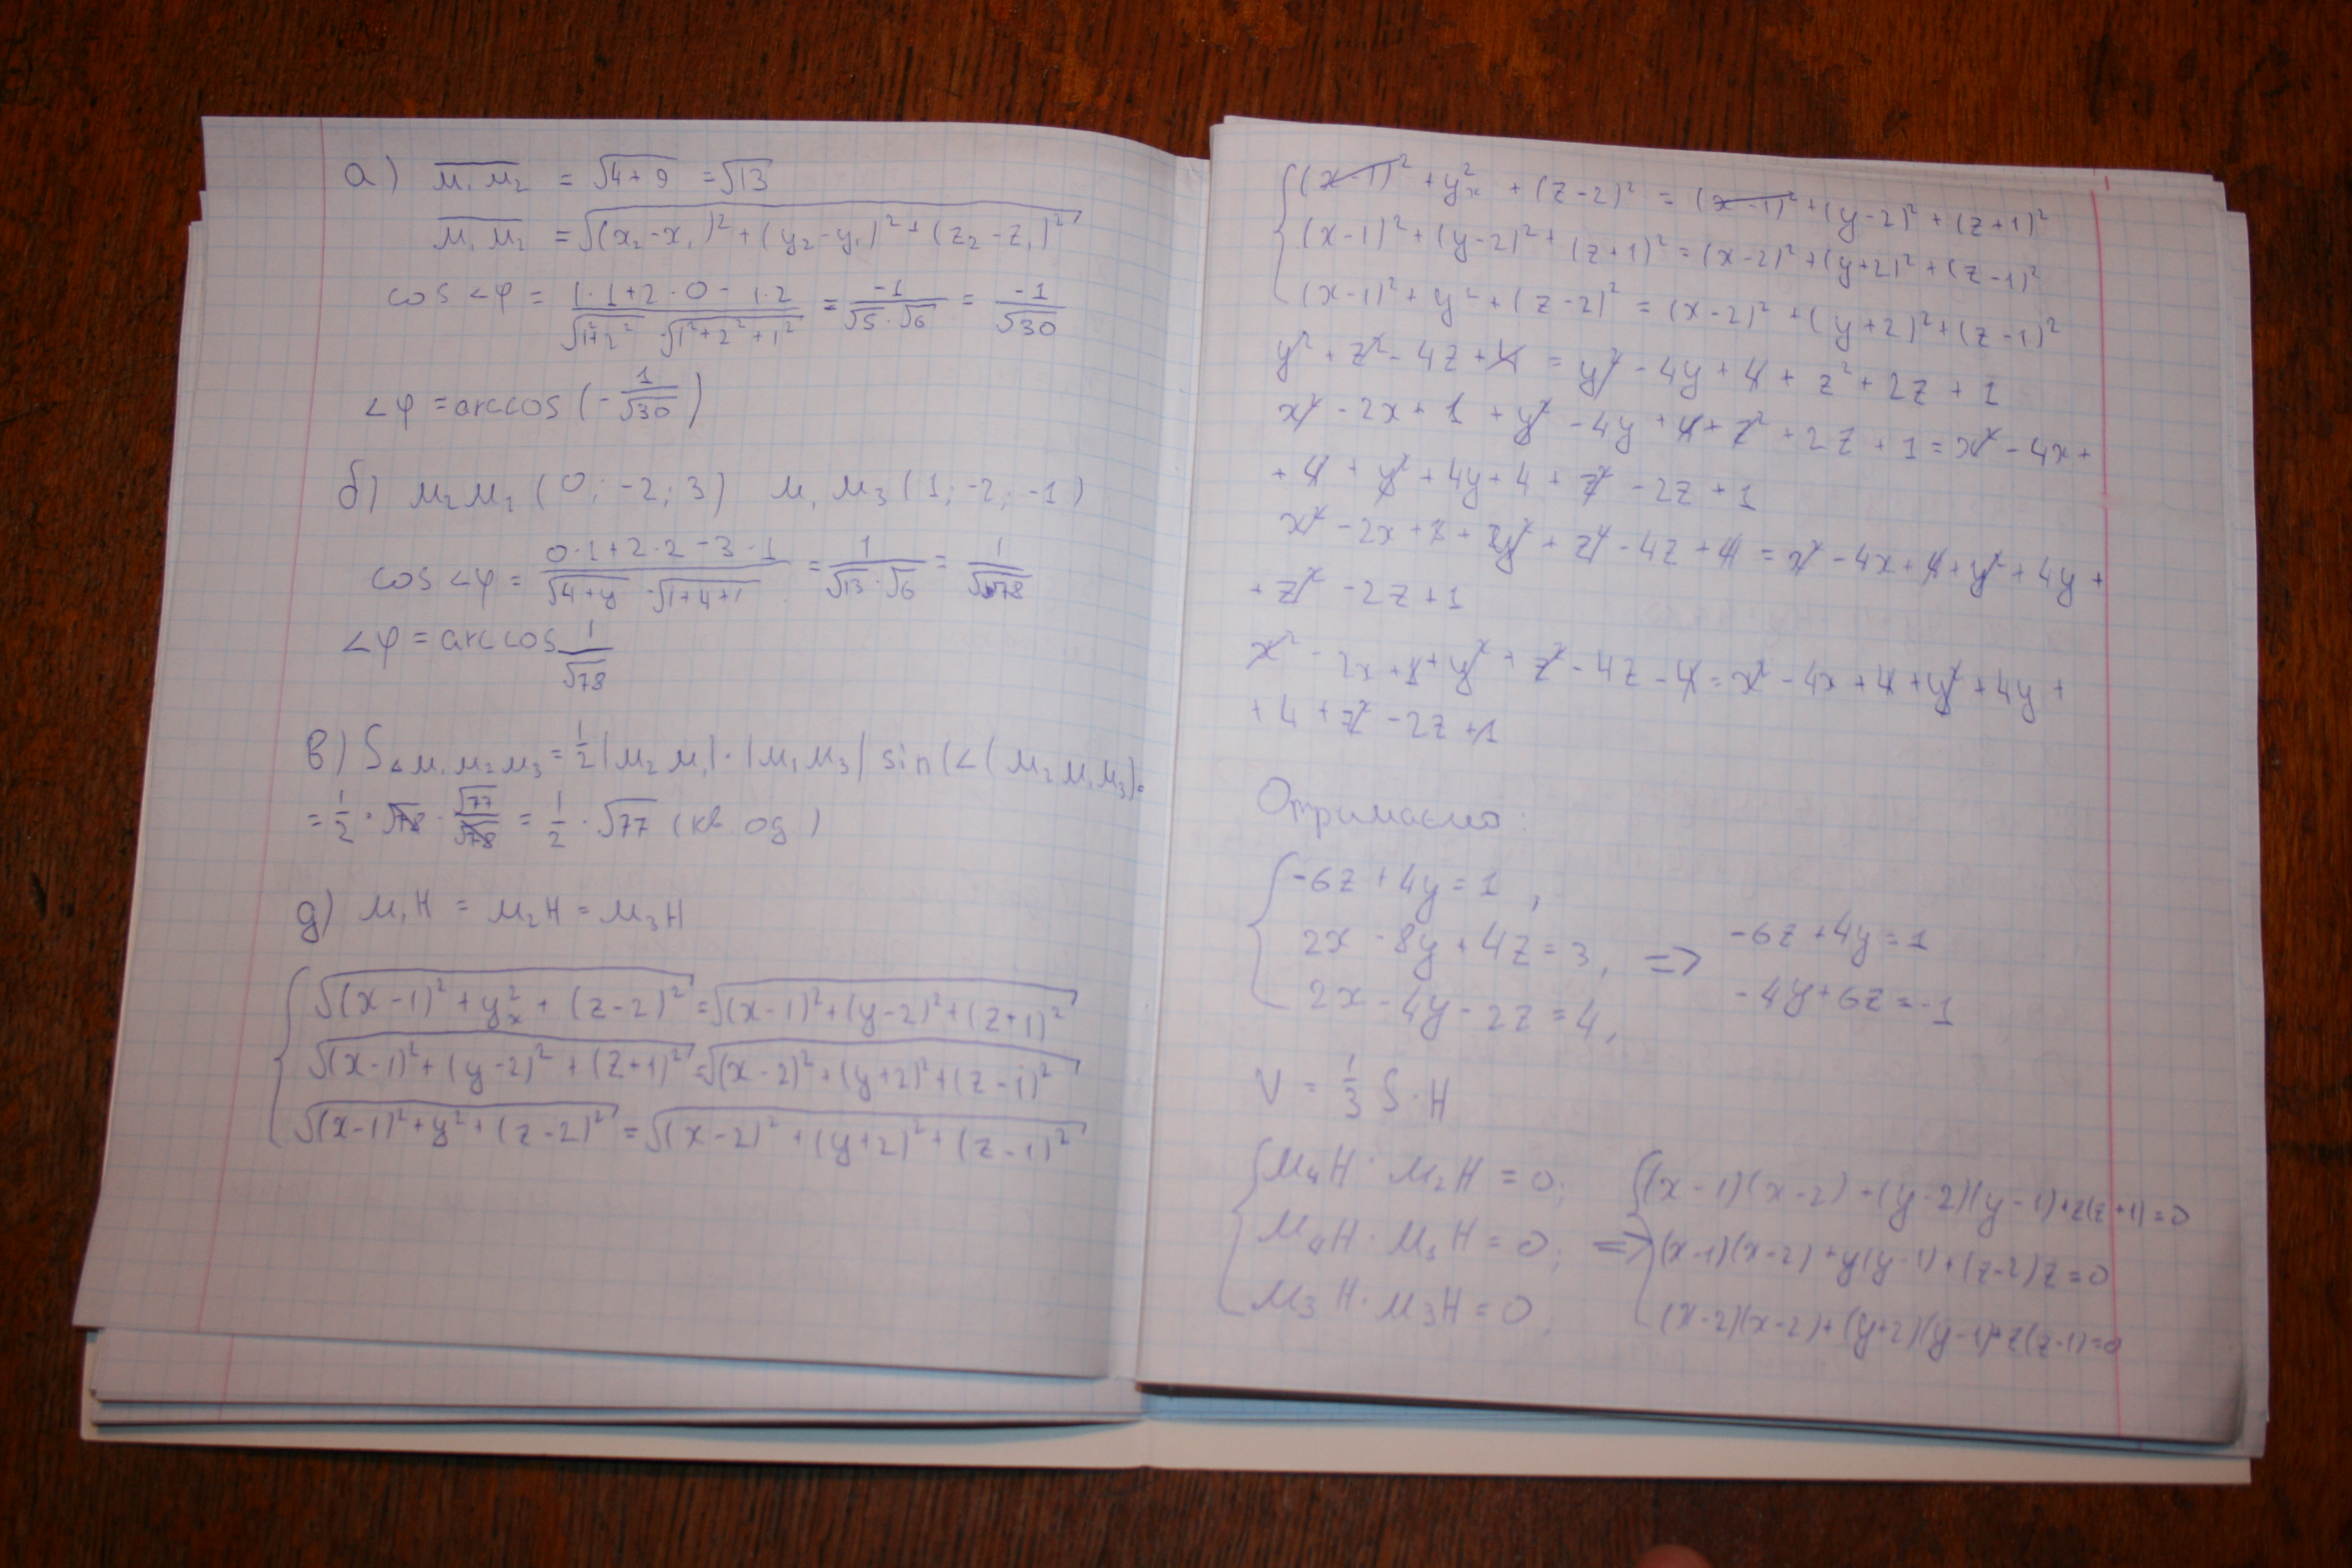 а) M₁M₂ = √(4+9) = √13
M₁M₂ = √((x₂-x₁)²+(y₂-y₁)²+(z₂-z₁)²)
cos ∠φ = (1·1+2·0-1·2)/(√(1²+2²)·√(1²+2²+1²)) = -1/(√5·√6) = -1/√30
∠φ = arccos(-1/√30)
б) M₂M₁(0; -2; 3) M₁M₃(1; -2; -1)
cos ∠φ = (0·1+2·2-3·1)/(√(4+y)·√(1+4+1)) = 1/(√13·√6) = 1/√78
∠φ = arccos 1/√78
в) S∆M₁M₂M₃ = ½|M₂M₁|·|M₁M₃| sin(∠(M₂M₁M₃)=
= ½·√78·√77/√78 = ½·√77 (кв од)
д) M₁H = M₂H = M₃H
{ √((x-1)²+y²+(z-2)²) = √((x-1)²+(y-2)²+(z+1)²)
√((x-1)²+(y-2)²+(z+1)²) = √((x-2)²+(y+2)²+(z-1)²)
√((x-1)²+y²+(z-2)²) = √((x-2)²+(y+2)²+(z-1)²)
{ (x-1)²+y²+(z-2)² = (x-1)²+(y-2)²+(z+1)²
(x-1)²+(y-2)²+(z+1)² = (x-2)²+(y+2)²+(z-1)²
(x-1)²+y²+(z-2)² = (x-2)²+(y+2)²+(z-1)²
y²+z²-4z+4 = y²-4y+4+z²+2z+1
x²-2x+1+y²-4y+4+z²+2z+1 = x²-4x+
+4+y²+4y+4+z²-2z+1
x²-2x+1+y²+z²-4z+4 = x²-4x+4+y²+4y+
+z²-2z+1
x²-2x+1+y²+z²-4z-4 = x²-4x+4+y²+4y+
+4+z²-2z+1
Отримаємо:
{ -6z+4y=1,
2x-8y+4z=3, => -6z+4y=1
2x-4y-2z=4, -4y+6z=-1
V = ⅓ S·H
{ M₄H·M₂H = 0; { (x-1)(x-2)+(y-2)(y-1)+z(z+1)=0
M₄H·M₁H = 0; => (x-1)(x-2)+y(y-1)+(z-2)z=0
M₃H·M₃H = 0, (x-2)(x-2)+(y+2)(y-1)+z(z-1)=0